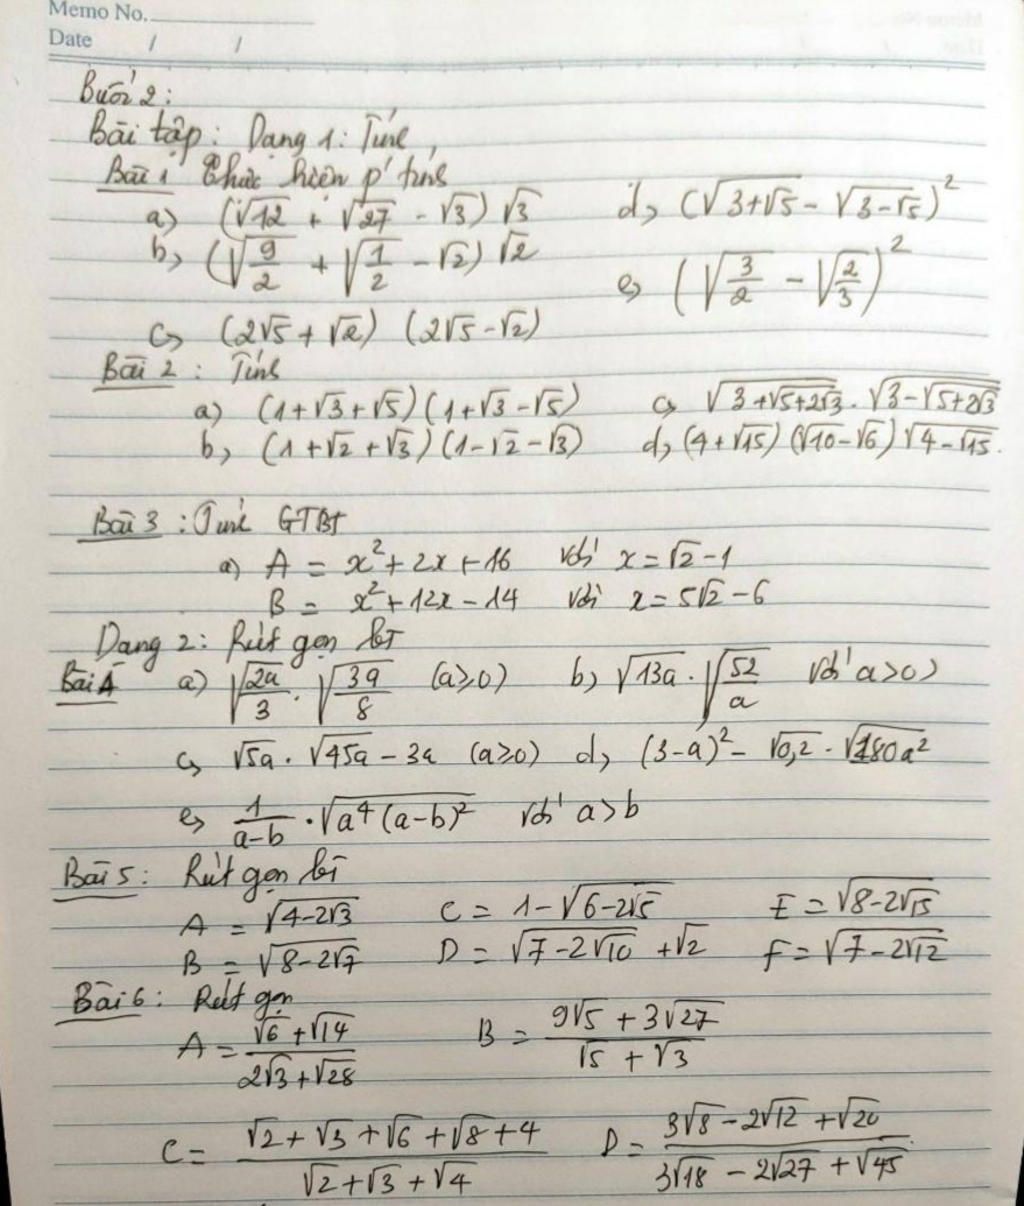 Memo No.
Date / /
Buổi 2:
Bài tập: Dạng 1: Tính
Bài 1 Thực hiện p' tính
a) (√12 + √27 - √3) √3 d, (√(3+√5) - √(3-√5))²
b, (√(9/2) + √(1/2) - √2) √2 e, (√(3/2) - √(2/3))²
c, (2√5 + √2) (2√5 - √2)
Bài 2 : Tính
a) (1+√3+√5) (1+√3-√5) c, √(3+√(5+2√3)) . √(3-√(5+2√3))
b, (1+√2+√3) (1-√2-√3) d, (4+√15) (√10-√6) √(4-√15).
Bài 3 : Tính GTBT
a) A = x² + 2x + 16 với x = √2 - 1
B = x² + 12x - 14 với x = 5√2 - 6
Dạng 2: Rút gọn BT
Bài 4 a) √(2a/3) . √(3a/8) (a≥0) b, √13a . √(52/a) với a>0)
c, √5a . √45a - 3a (a≥0) d, (3-a)² - √0,2 . √180a²
e, 1/(a-b) . √(a⁴(a-b)²) với a>b
Bài 5: Rút gọn bt
A = √(4-2√3) C = 1-√(6-2√5) E = √(8-2√15)
B = √(8-2√7) D = √(7-2√10) + √2 F = √(7-2√12)
Bài 6: Rút gọn
A = (√6+√14)/(2√3+√28) B = (9√5 + 3√27)/(√5 + √3)
C = (√2+√3+√6+√8+4)/(√2+√3+√4) D = (3√8 - 2√12 + √20)/(3√18 - 2√27 + √45)